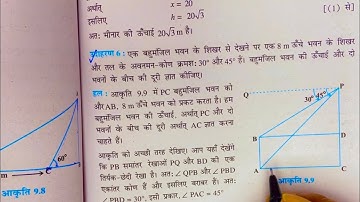 अर्थात् x = 20
इसलिए h = 20√3
अत: मीनार की ऊँचाई 20√3 m है। [(1) से]
उदाहरण 6 : एक बहुमंजिल भवन के शिखर से देखने पर एक 8 m ऊँचे भवन के शिखर
और तल के अवनमन-कोण क्रमश: 30° और 45° हैं। बहुमंजिल भवन की ऊँचाई और दो
भवनों के बीच की दूरी ज्ञात कीजिए।
हल : आकृति 9.9 में PC बहुमंजिल भवन को
और AB, 8 m ऊँचे भवन को प्रकट करता है। हम
बहुमंजिल भवन की ऊँचाई, अर्थात् PC और दो
भवनों के बीच की दूरी अर्थात् AC ज्ञात करना
चाहते हैं।
आकृति को अच्छी तरह देखिए। आप यहाँ देखेंगे
कि PB समांतर रेखाओं PQ और BD की एक
तिर्यक-छेदी रेखा है। अत: ∠QPB और ∠PBD
एकांतर कोण हैं और इसलिए बराबर हैं। अत:
∠PBD = 30°, इसी प्रकार, ∠PAC = 45°
60°
C
आकृति 9.8
Q
P
30°
45°
B
D
A
C
आकृति 9.9